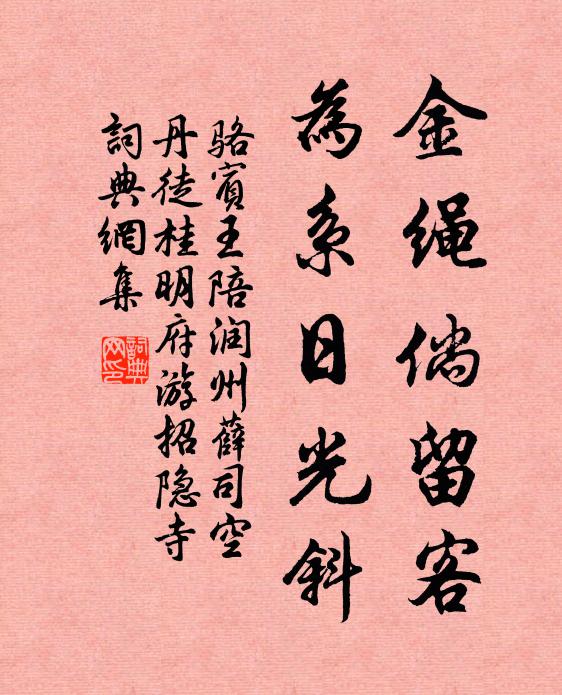 金绳倘留客
為系日光斜
骆賓王陪润州薛司空
丹徒桂明府游招隐寺
詞典網集
詞典
网印